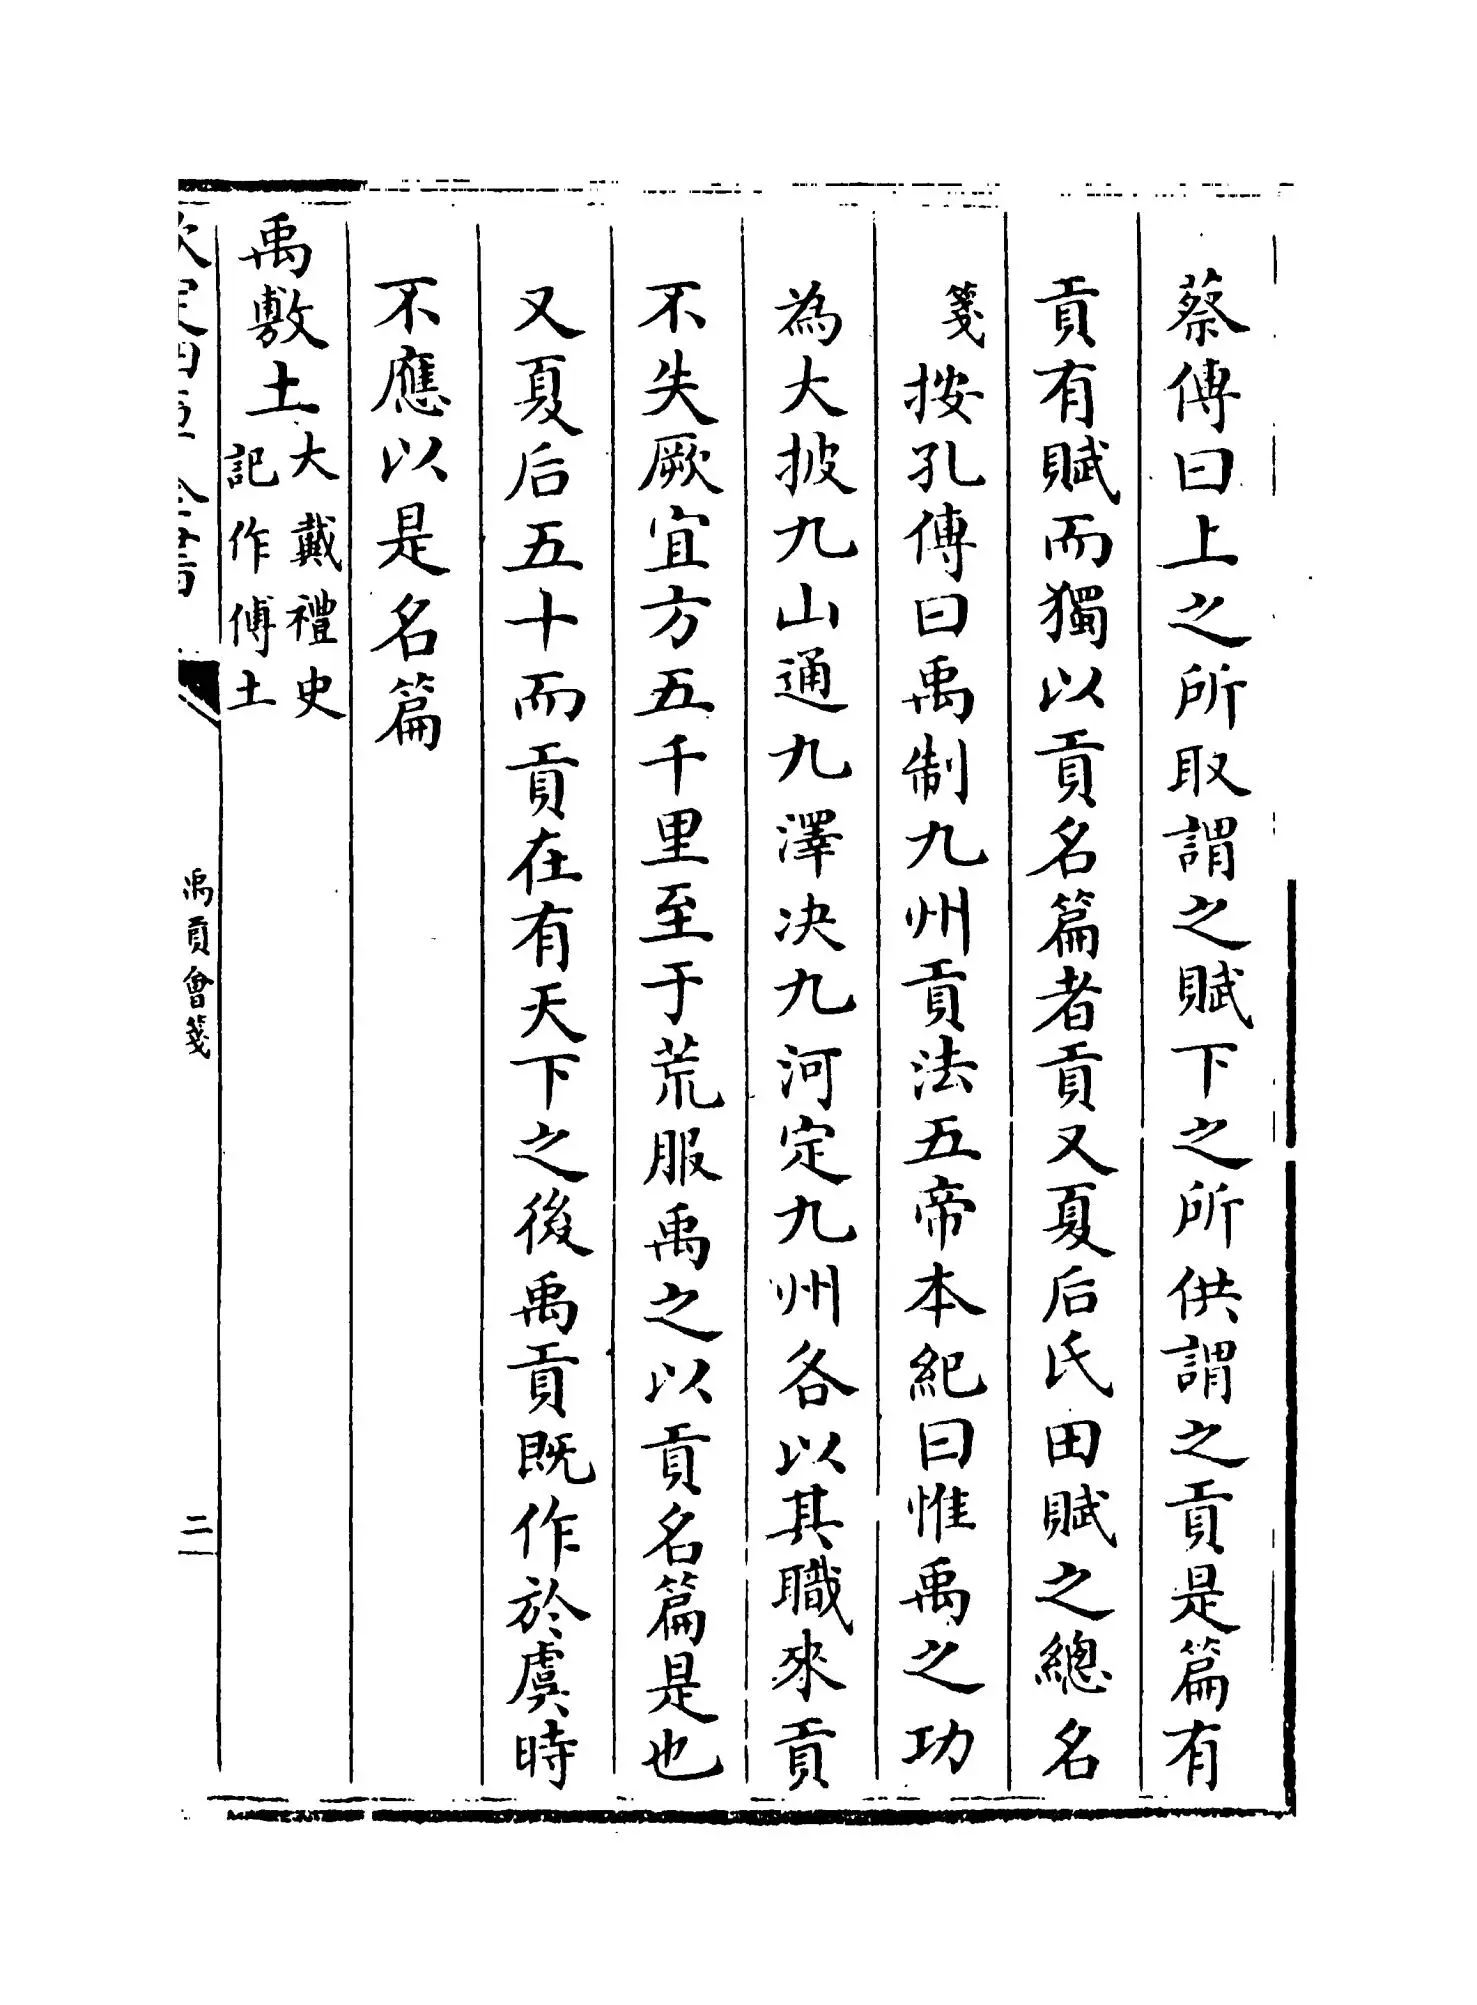 蔡傳曰上之所取謂之賦下之所供謂之貢是篇有
貢有賦而獨以貢名篇者貢又夏后氏田賦之總名
箋按孔傳曰禹制九州貢法五帝本紀曰惟禹之功
為大披九山通九澤決九河定九州各以其職來貢
不失厥宜方五千里至于荒服禹之以貢名篇是也
又夏后五十而貢在有天下之後禹貢既作於虞時
不應以是名篇
禹敷土大戴禮史
記作傅土
欽定四庫全書
禹貢會箋
二